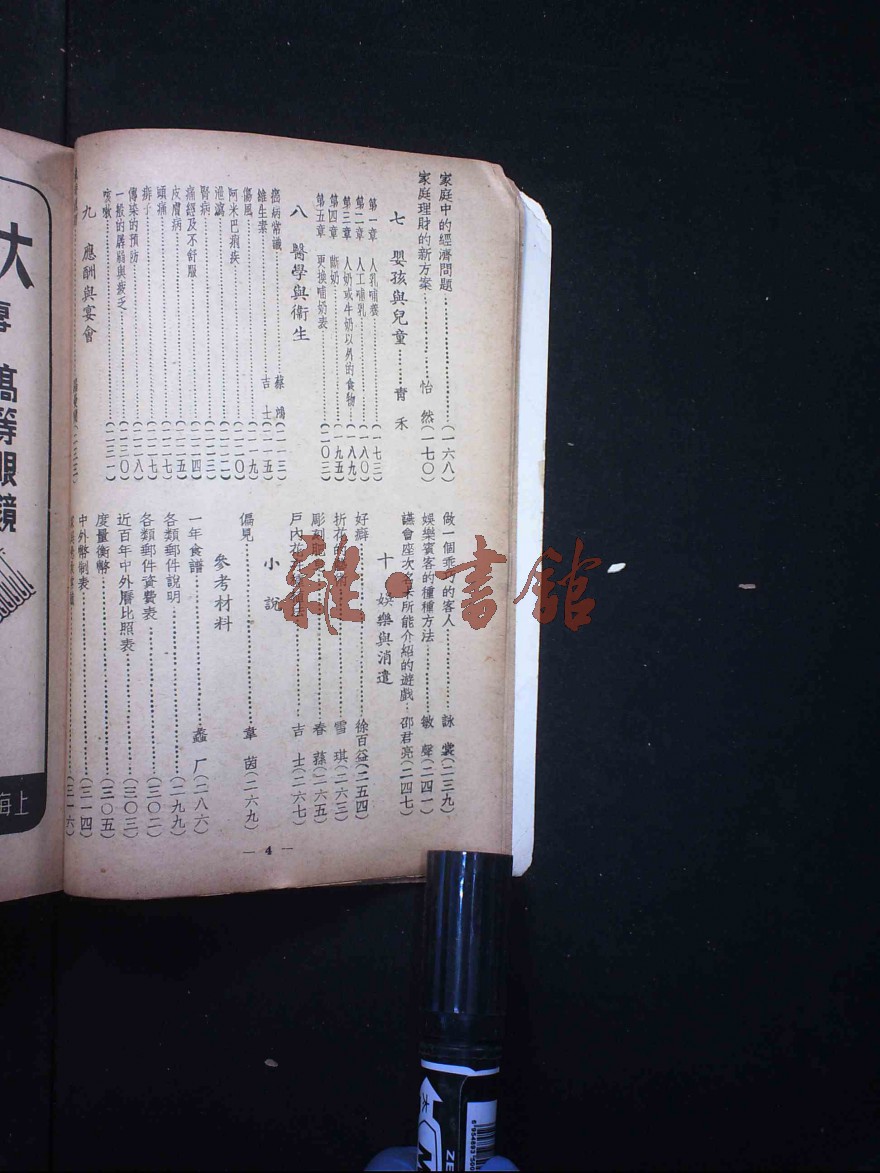 家庭中的經濟問題……(一六八)
家庭理財的新方案……怡然(一七〇)
七 嬰孩與兒童……青禾
第一章 人乳哺養……(一七三)
第二章 人工哺乳……(一八〇)
第三章 人奶或牛奶以外的食物…(一八九)
第四章 斷奶……(一九五)
第五章 更換哺奶表……(二〇三)
八 醫學與衛生
癆病常識……蔡鴻(二一三)
維生素……吉士(二一五)
傷風……(二一九)
阿米巴痢疾……(二二〇)
泄瀉……(二二二)
腎病……(二二三)
痛經及不舒服……(二二四)
皮膚病……(二二五)
頭痛……(二二七)
痱子……(二二七)
傳染的預防……(二二八)
一般的孱弱與疲乏……(二三〇)
咳嗽……(二三一)
九 應酬與宴會
(二三三)
做一個乖巧的客人……詠裳(二三九)
娛樂賓客的種種方法……敏聲(二四一)
讌會座次名宋所能介紹的遊戲…邵君亮(二四七)
十 娛樂與消遣
好癖……徐百益(二五四)
折花的……雪琪(二六三)
彫刻……春蓀(二六五)
戶內花……吉士(二六七)
小說
偏見……韋茵(二六九)
參考材料
一年食譜……蠡厂(二八六)
各類郵件說明……(二九九)
各類郵件資費表……(三〇二)
近百年中外曆比照表……(三〇三)
度量衡幣……(三〇五)
中外幣制表……(三一四)
(三一六)
— 4 —
雜·書館
大
高等眼鏡
上海